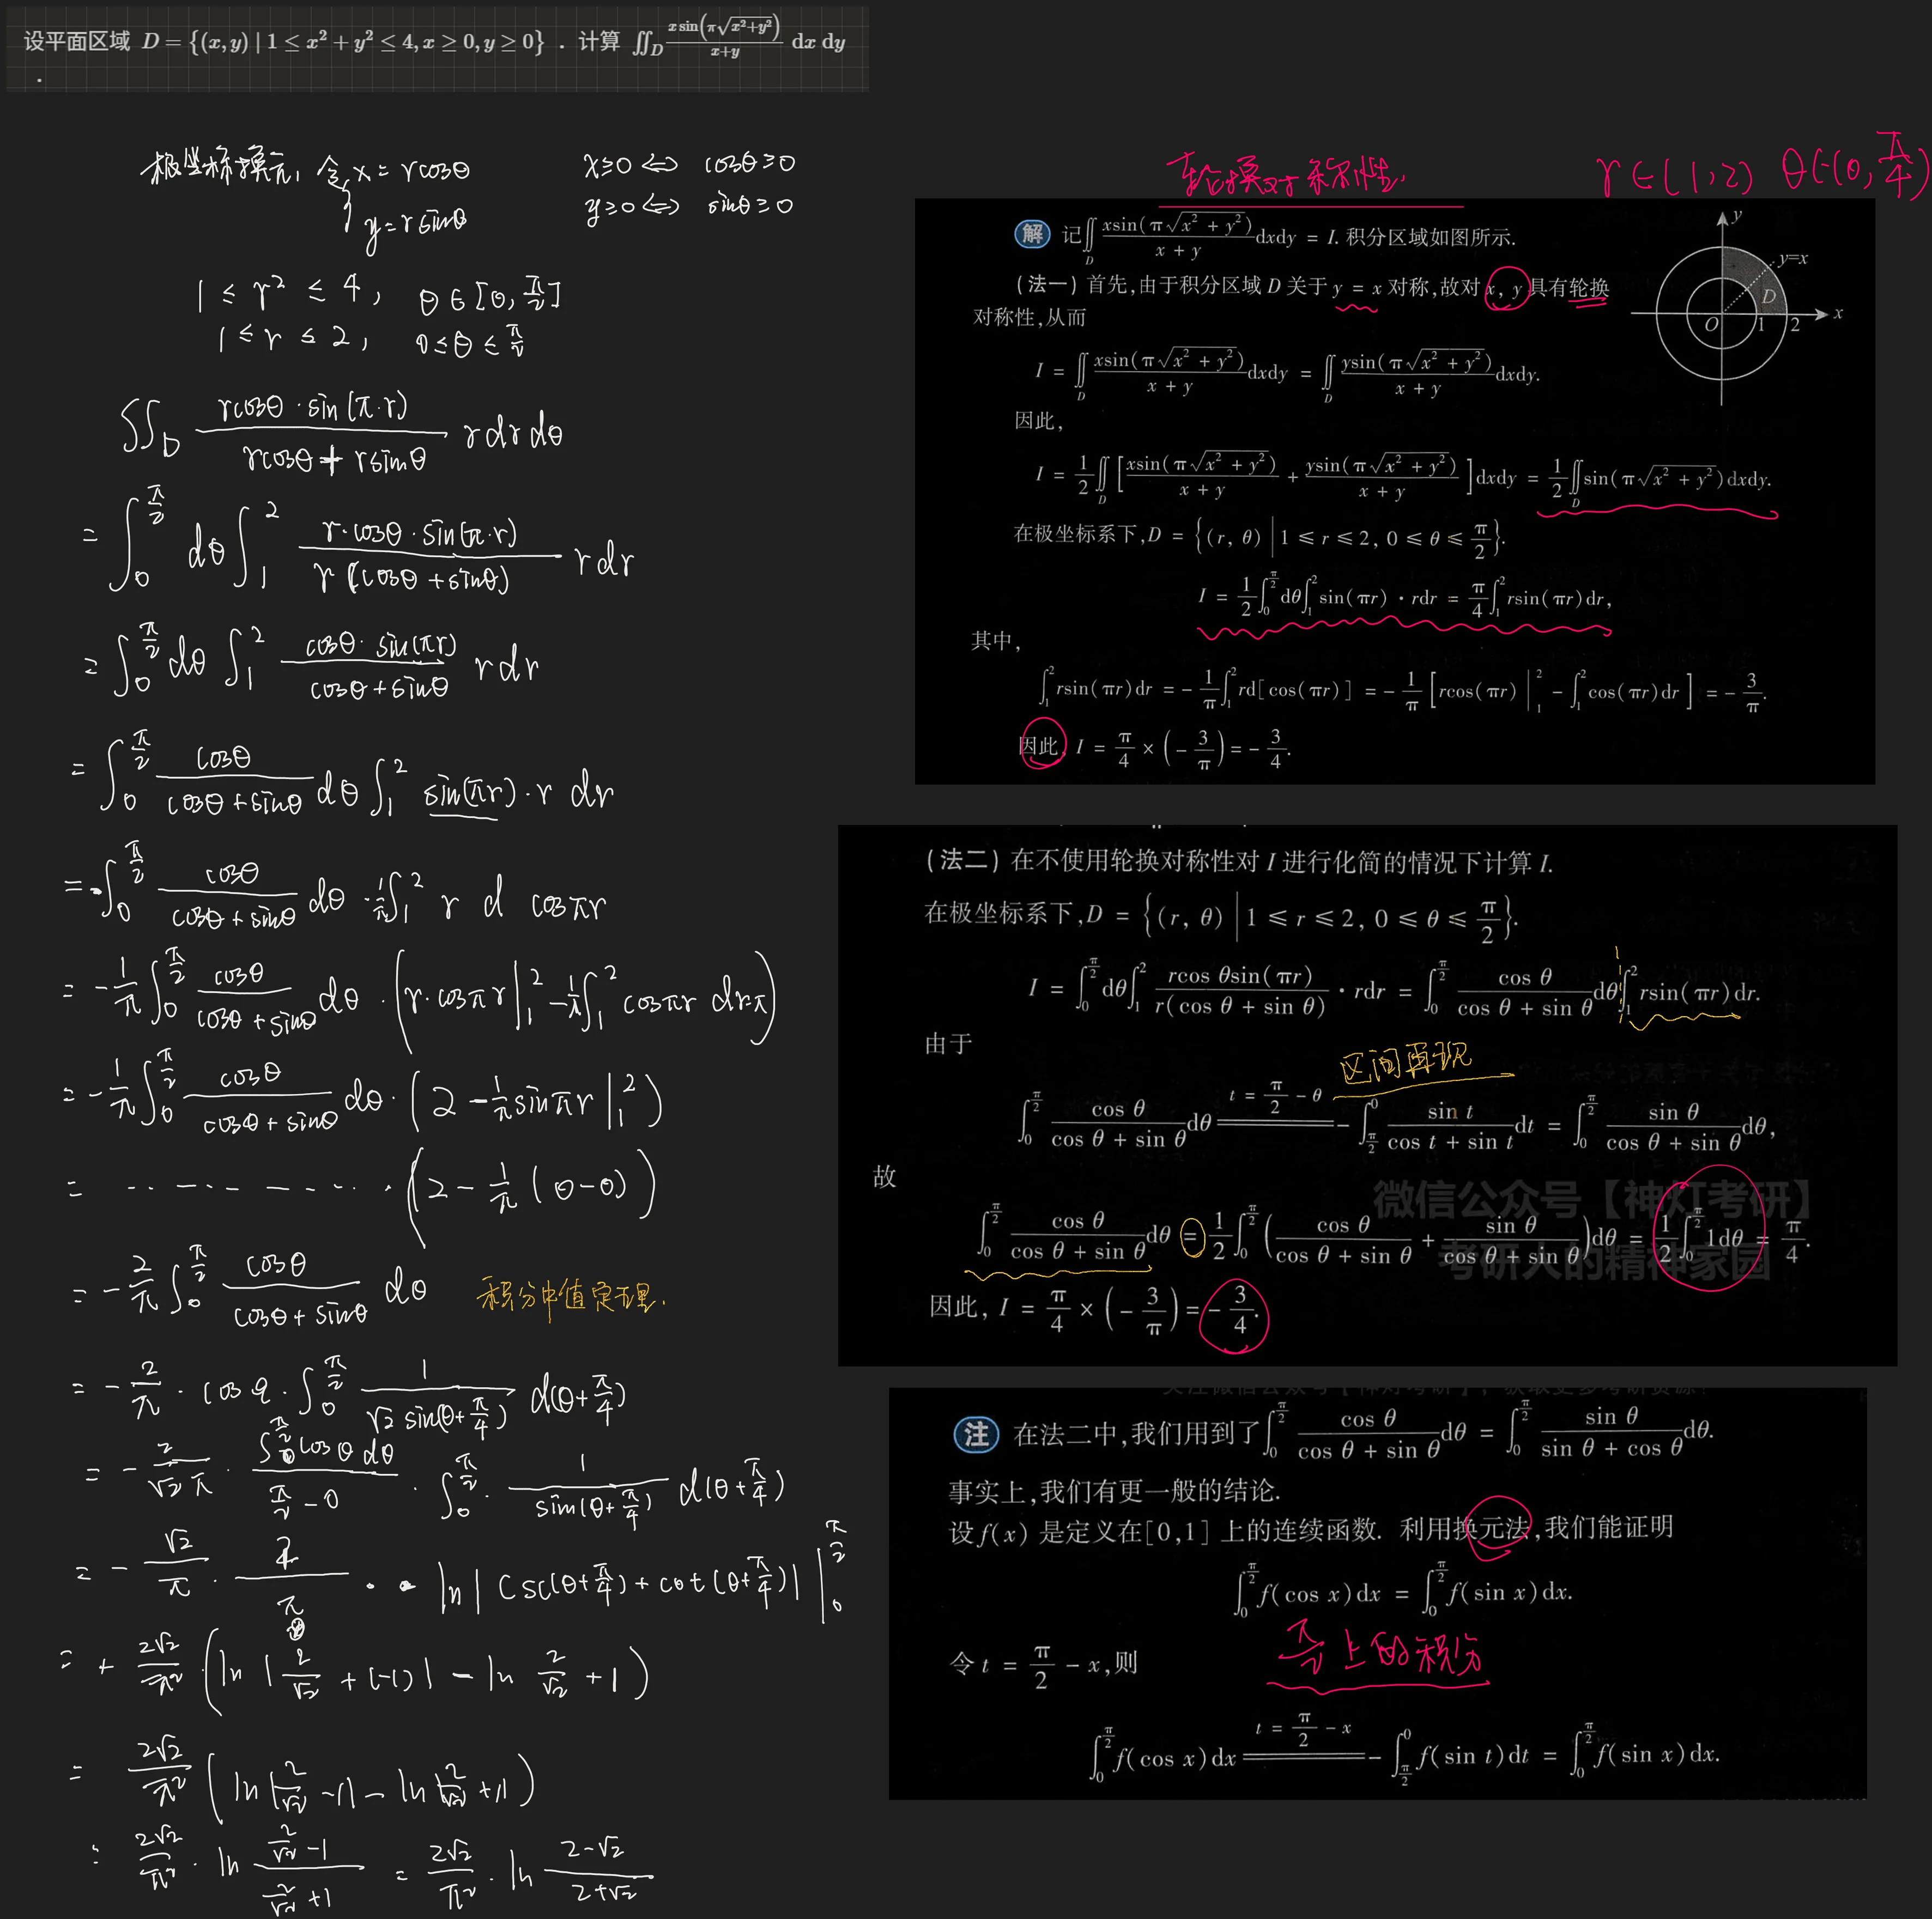 设平面区域 $D=\{(x,y)\mid 1\leq x^2+y^2\leq 4,x\geq 0,y\geq 0\}$ ．计算 $\iint_D\frac{x\sin(\pi\sqrt{x^2+y^2})}{x+y}\ \mathrm{d}x\ \mathrm{d}y$
.
极坐标换元, 令 { x = rcosθ
y = rsinθ
x≥0 ⇔ cosθ≥0
y≥0 ⇔ sinθ≥0
1 ≤ r² ≤ 4, θ∈[0, π/2]
1 ≤ r ≤ 2, 0≤θ≤π/2
$\iint_D \frac{r\cos\theta\cdot\sin(\pi\cdot r)}{r\cos\theta+r\sin\theta} r\,dr\,d\theta$
$=\int_0^{\frac{\pi}{2}} d\theta\int_1^2 \frac{r\cdot\cos\theta\cdot\sin(\pi\cdot r)}{r(\cos\theta+\sin\theta)} r\,dr$
$=\int_0^{\frac{\pi}{2}} d\theta\int_1^2 \frac{\cos\theta\cdot\sin(\pi r)}{\cos\theta+\sin\theta} r\,dr$
$=\int_0^{\frac{\pi}{2}} \frac{\cos\theta}{\cos\theta+\sin\theta} d\theta\int_1^2 \sin(\pi r)\cdot r\,dr$
$=-\int_0^{\frac{\pi}{2}} \frac{\cos\theta}{\cos\theta+\sin\theta} d\theta\cdot\frac{1}{\pi}\int_1^2 r\,d\cos\pi r$
$=-\frac{1}{\pi}\int_0^{\frac{\pi}{2}} \frac{\cos\theta}{\cos\theta+\sin\theta} d\theta\cdot\left(r\cdot\cos\pi r\Big|_1^2-\frac{1}{\pi}\int_1^2\cos\pi r\,dr\cdot\pi\right)$
$=-\frac{1}{\pi}\int_0^{\frac{\pi}{2}} \frac{\cos\theta}{\cos\theta+\sin\theta} d\theta\cdot\left(2-\frac{1}{\pi}\sin\pi r\Big|_1^2\right)$
$= \cdots\cdots\cdots\cdot\left(2-\frac{1}{\pi}(0-0)\right)$
$=-\frac{2}{\pi}\int_0^{\frac{\pi}{2}} \frac{\cos\theta}{\cos\theta+\sin\theta} d\theta$ 积分中值定理.
$=-\frac{2}{\pi}\cdot\cos q\cdot\int_0^{\frac{\pi}{2}} \frac{1}{\sqrt{2}\sin(\theta+\frac{\pi}{4})} d(\theta+\frac{\pi}{4})$
$=-\frac{2}{\sqrt{2}\pi}\cdot\frac{\int_0^{\frac{\pi}{2}}\cos\theta\,d\theta}{\frac{\pi}{2}-0}\cdot\int_0^{\frac{\pi}{2}}\cdot\frac{1}{\sin(\theta+\frac{\pi}{4})} d(\theta+\frac{\pi}{4})$
$=-\frac{\sqrt{2}}{\pi}\cdot\frac{2}{\pi}\cdot\ln|\csc(\theta+\frac{\pi}{4})+\cot(\theta+\frac{\pi}{4})|\Big|_0^{\frac{\pi}{2}}$
$=+\frac{2\sqrt{2}}{\pi^2}\cdot\left(\ln|\frac{2}{\sqrt{2}}+(-1)|-\ln\frac{2}{\sqrt{2}}+1\right)$
$=\frac{2\sqrt{2}}{\pi^2}\left(\ln|\frac{2}{\sqrt{2}}-1|-\ln|\frac{2}{\sqrt{2}}+1|\right)$
$=\frac{2\sqrt{2}}{\pi^2}\cdot\ln\frac{\frac{2}{\sqrt{2}}-1}{\frac{2}{\sqrt{2}}+1}=\frac{2\sqrt{2}}{\pi^2}\cdot\ln\frac{2-\sqrt{2}}{2+\sqrt{2}}$
轮换对称性, r∈(1,2) θ∈(0, π/4)
解 记$\iint_D\frac{x\sin(\pi\sqrt{x^2+y^2})}{x+y}\mathrm{d}x\mathrm{d}y=I$. 积分区域如图所示.
(法一) 首先,由于积分区域 D 关于 y = x 对称,故对 x, y 具有轮换
对称性,从而
$I=\iint_D\frac{x\sin(\pi\sqrt{x^2+y^2})}{x+y}\mathrm{d}x\mathrm{d}y=\iint_D\frac{y\sin(\pi\sqrt{x^2+y^2})}{x+y}\mathrm{d}x\mathrm{d}y.$
y
y=x
D
O 1 2 x
因此,
$I=\frac{1}{2}\iint_D\left[\frac{x\sin(\pi\sqrt{x^2+y^2})}{x+y}+\frac{y\sin(\pi\sqrt{x^2+y^2})}{x+y}\right]\mathrm{d}x\mathrm{d}y=\frac{1}{2}\iint_D\sin(\pi\sqrt{x^2+y^2})\mathrm{d}x\mathrm{d}y.$
在极坐标系下, $D=\left\{(r,\theta)\middle|1\leq r\leq 2,0\leq\theta\leq\frac{\pi}{2}\right\}.$
$I=\frac{1}{2}\int_0^{\frac{\pi}{2}}\mathrm{d}\theta\int_1^2\sin(\pi r)\cdot r\mathrm{d}r=\frac{\pi}{4}\int_1^2 r\sin(\pi r)\mathrm{d}r,$
其中,
$\int_1^2 r\sin(\pi r)\mathrm{d}r=-\frac{1}{\pi}\int_1^2 r\mathrm{d}[\cos(\pi r)]=-\frac{1}{\pi}\left[r\cos(\pi r)\Big|_1^2-\int_1^2\cos(\pi r)\mathrm{d}r\right]=-\frac{3}{\pi}.$
因此, $I=\frac{\pi}{4}\times\left(-\frac{3}{\pi}\right)=-\frac{3}{4}.$
(法二) 在不使用轮换对称性对 I 进行化简的情况下计算 I.
在极坐标系下, $D=\left\{(r,\theta)\middle|1\leq r\leq 2,0\leq\theta\leq\frac{\pi}{2}\right\}.$
$I=\int_0^{\frac{\pi}{2}}\mathrm{d}\theta\int_1^2\frac{r\cos\theta\sin(\pi r)}{r(\cos\theta+\sin\theta)}\cdot r\mathrm{d}r=\int_0^{\frac{\pi}{2}}\frac{\cos\theta}{\cos\theta+\sin\theta}\mathrm{d}\theta\int_1^2 r\sin(\pi r)\mathrm{d}r.$
由于
区间再现
$\int_0^{\frac{\pi}{2}}\frac{\cos\theta}{\cos\theta+\sin\theta}\mathrm{d}\theta\overset{t=\frac{\pi}{2}-\theta}{=}-\int_{\frac{\pi}{2}}^0\frac{\sin t}{\cos t+\sin t}\mathrm{d}t=\int_0^{\frac{\pi}{2}}\frac{\sin\theta}{\cos\theta+\sin\theta}\mathrm{d}\theta,$
故
微信公众号【神灯考研】
$\int_0^{\frac{\pi}{2}}\frac{\cos\theta}{\cos\theta+\sin\theta}\mathrm{d}\theta=\frac{1}{2}\int_0^{\frac{\pi}{2}}\left(\frac{\cos\theta}{\cos\theta+\sin\theta}+\frac{\sin\theta}{\cos\theta+\sin\theta}\right)\mathrm{d}\theta=\frac{1}{2}\int_0^{\frac{\pi}{2}}1\mathrm{d}\theta=\frac{\pi}{4}.$
考研人的精神家园
因此, $I=\frac{\pi}{4}\times\left(-\frac{3}{\pi}\right)=-\frac{3}{4}.$
注 在法二中,我们用到了$\int_0^{\frac{\pi}{2}}\frac{\cos\theta}{\cos\theta+\sin\theta}\mathrm{d}\theta=\int_0^{\frac{\pi}{2}}\frac{\sin\theta}{\sin\theta+\cos\theta}\mathrm{d}\theta.$
事实上,我们有更一般的结论.
设 f(x) 是定义在[0,1]上的连续函数. 利用换元法,我们能证明
$\int_0^{\frac{\pi}{2}}f(\cos x)\mathrm{d}x=\int_0^{\frac{\pi}{2}}f(\sin x)\mathrm{d}x.$
π/2 上的积分
令 $t=\frac{\pi}{2}-x$,则
$\int_0^{\frac{\pi}{2}}f(\cos x)\mathrm{d}x\overset{t=\frac{\pi}{2}-x}{=}-\int_{\frac{\pi}{2}}^0 f(\sin t)\mathrm{d}t=\int_0^{\frac{\pi}{2}}f(\sin x)\mathrm{d}x.$